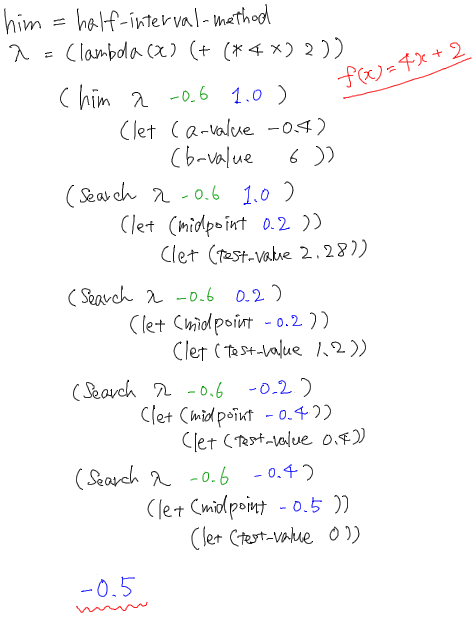 him = half-interval-method
λ = (lambda (x) (+ (* 4 x) 2))
f(x) = 4x + 2
(him λ -0.6 1.0)
(let (a-value -0.4)
(b-value 6))
(Search λ -0.6 1.0)
(let (midpoint 0.2))
(let (test-value 2.28))
(Search λ -0.6 0.2)
(let (midpoint -0.2))
(let (test-value 1.2))
(Search λ -0.6 -0.2)
(let (midpoint -0.4))
(let (test-value 0.4))
(Search λ -0.6 -0.4)
(let (midpoint -0.5))
(let (test-value 0))
-0.5